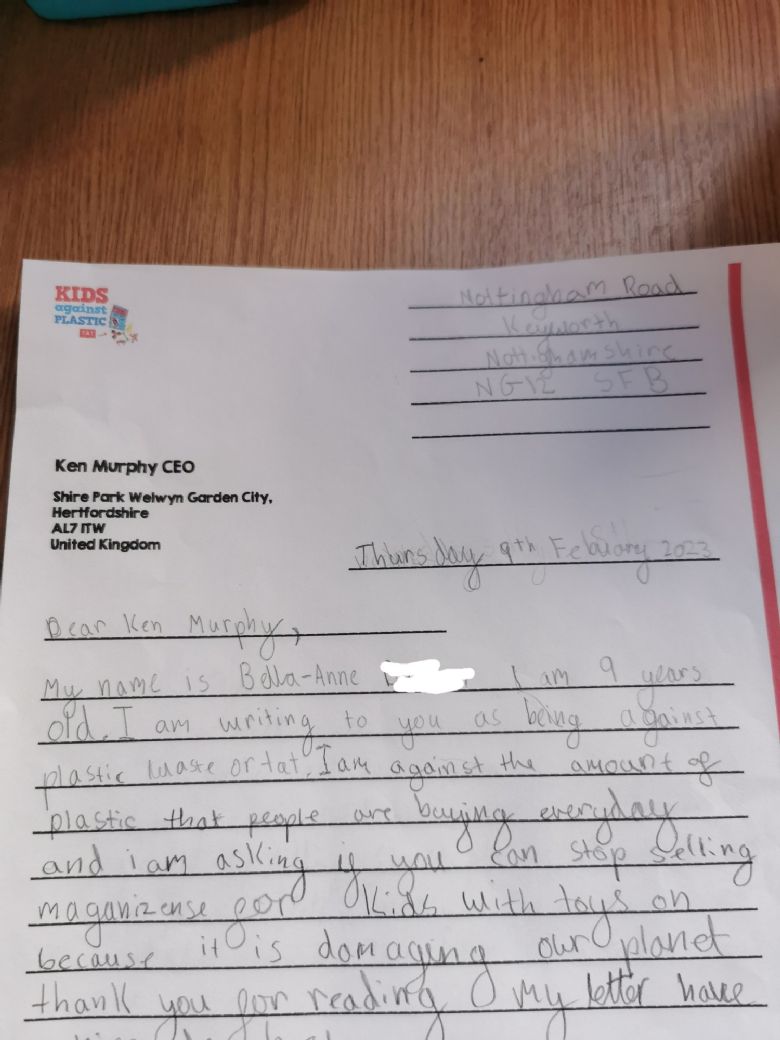 KIDS
against
PLASTIC
Nottingham Road
Keyworth
Nottinghamshire
NG12 5FB
Ken Murphy CEO
Shire Park Welwyn Garden City,
Hertfordshire
AL7 1TW
United Kingdom
Thursday 9th February 2023
Dear Ken Murphy,
My name is Bella-Anne I am 9 years
old. I am writing to you as being against
plastic waste or tat. I am against the amount of
plastic that people are buying everyday
and i am asking if you can stop selling
maganizense for kids with toys on
because it is domaging our planet
thank you for reading my letter have